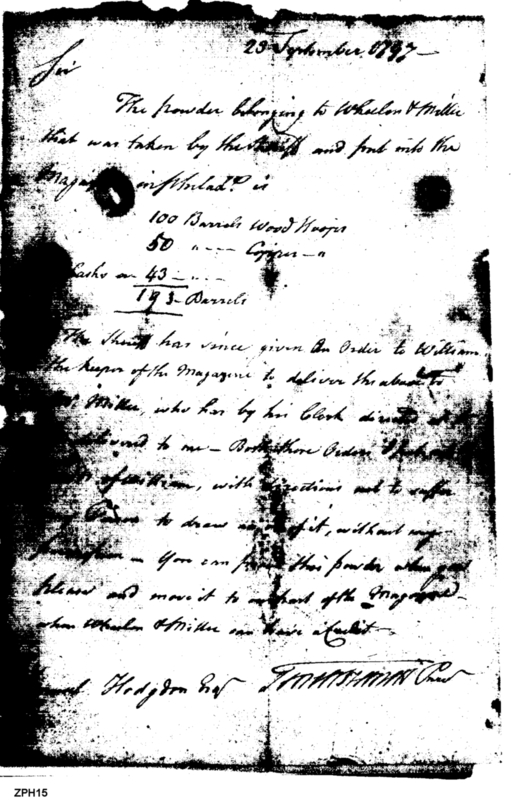 23 September 1797
Sir
The powder belonging to Whelen & Miller
that was taken by the Sheriff and put into the
in Philad.ª is
100 Barrels Wood Hoops
50 " -- Copper - "
Casks on 43 - " -
193 - Barrels
The Sheriff has since given an Order to William
the keeper of the Magazine to deliver the above to
Miller, who has by his Clerk directed
delivered to me - Both these Orders
of William, with directions not to suffer
any Person to draw any of it, without my
permission - You can prove this powder when you
please and move it to our part of the Magazine
when Whelen & Miller can have a Credit -
Hodgdon Esq
ZPH15